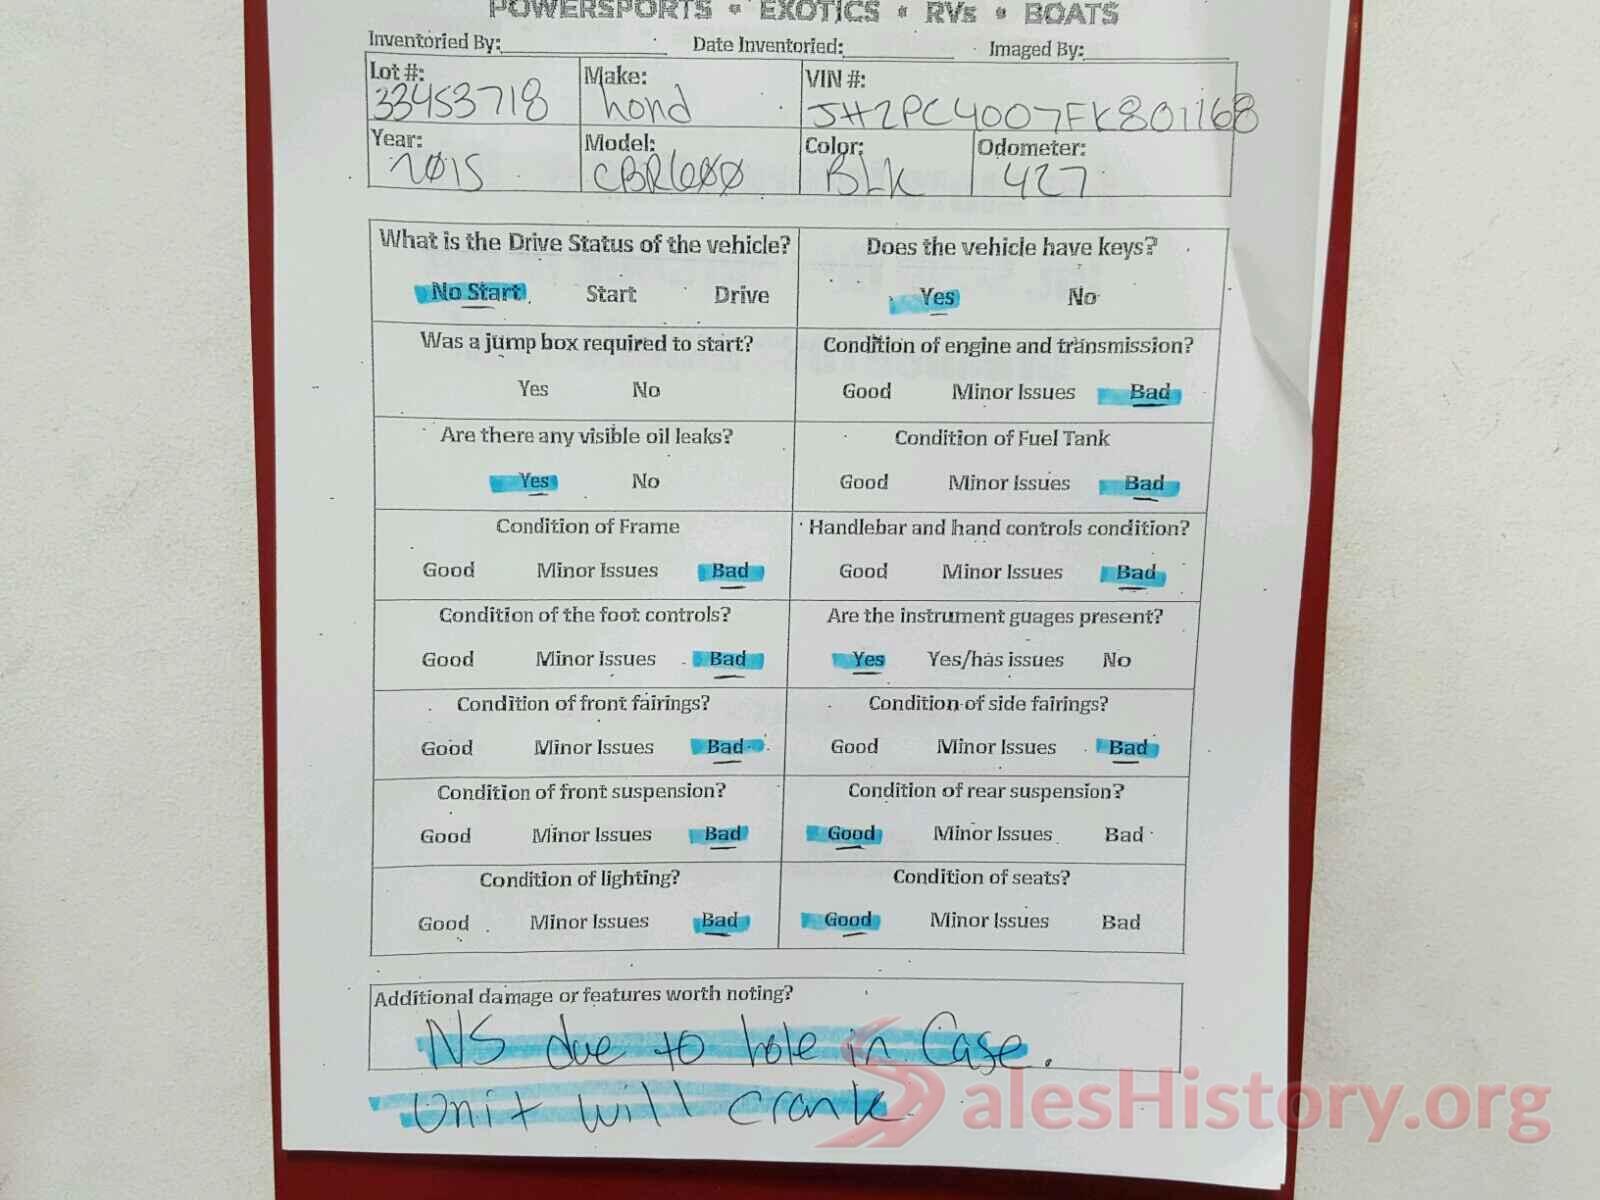 POWERSPORTS • EXOTICS • RVs • BOATS
Inventoried By: Date Inventoried: Imaged By:
Lot #: Make: VIN #:
33453718 hond JH2PC4007FK801168
Year: Model: Color: Odometer:
2015 CBR600 BLK 427
What is the Drive Status of the vehicle? Does the vehicle have keys?
No Start Start Drive Yes No
Was a jump box required to start? Condition of engine and transmission?
Yes No Good Minor Issues Bad
Are there any visible oil leaks? Condition of Fuel Tank
Yes No Good Minor Issues Bad
Condition of Frame Handlebar and hand controls condition?
Good Minor Issues Bad Good Minor Issues Bad
Condition of the foot controls? Are the instrument guages present?
Good Minor Issues Bad Yes Yes/has issues No
Condition of front fairings? Condition of side fairings?
Good Minor Issues Bad Good Minor Issues Bad
Condition of front suspension? Condition of rear suspension?
Good Minor Issues Bad Good Minor Issues Bad
Condition of lighting? Condition of seats?
Good Minor Issues Bad Good Minor Issues Bad
Additional damage or features worth noting?
NS due to hole in Case.
Unit will crank
SalesHistory.org